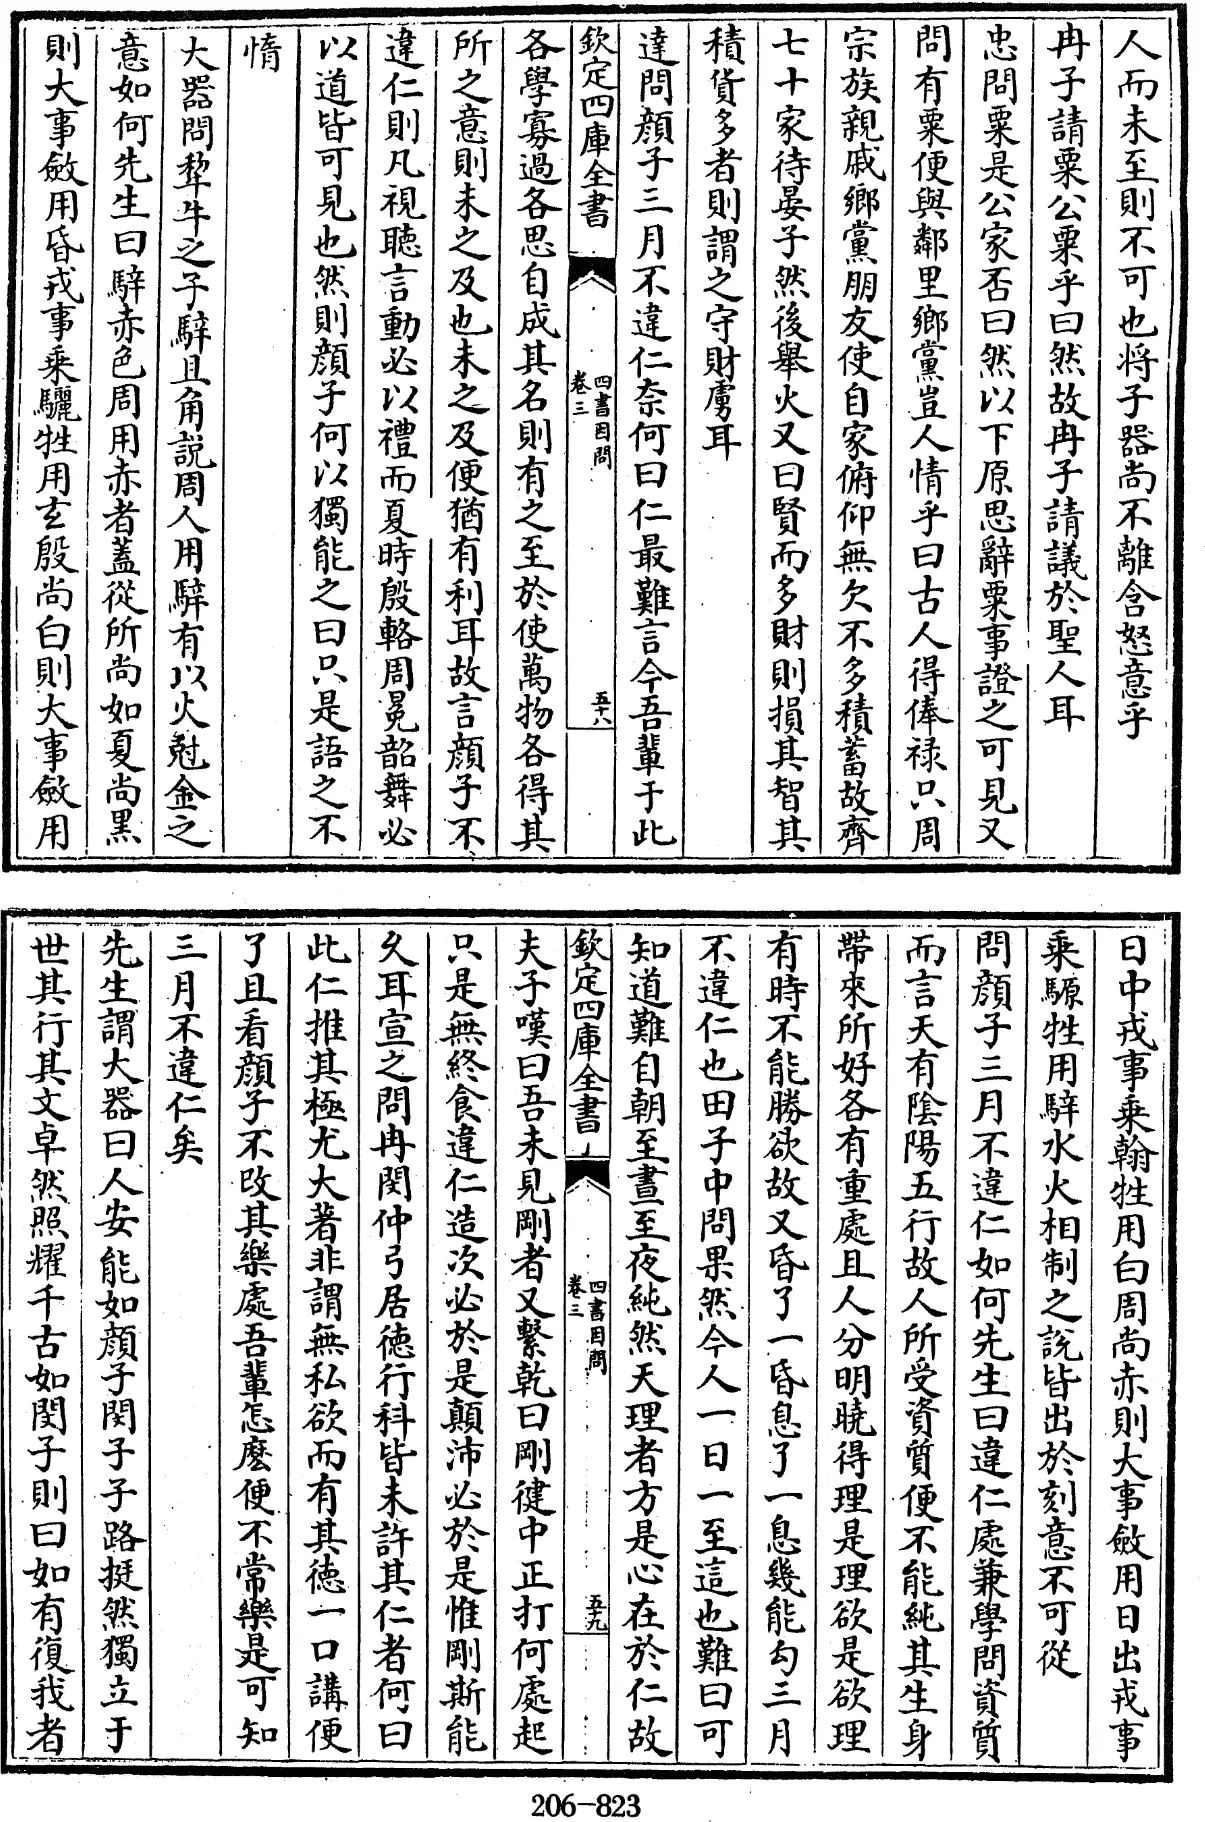 人而未至則不可也将子器尚不離含怒意乎
冉子請粟公粟乎曰然故冉子請議於聖人耳
忠問粟是公家否曰然以下原思辭粟事證之可見又
問有粟便與鄰里鄉黨豈人情乎曰古人得俸禄只周
宗族親戚鄉黨朋友使自家俯仰無欠不多積蓄故齊
七十家待晏子然後舉火又曰賢而多財則損其智其
積貨多者則謂之守財虜耳
達問顔子三月不違仁奈何曰仁最難言今吾輩于此
欽定四庫全書
四書因問
卷三
五十八
各學寡過各思自成其名則有之至於使萬物各得其
所之意則未之及也未之及便猶有利耳故言顔子不
違仁則凡視聽言動必以禮而夏時殷輅周冕韶舞必
以道皆可見也然則顔子何以獨能之曰只是語之不
惰
大器問犂牛之子騂且角説周人用騂有以火尅金之
意如何先生曰騂赤色周用赤者蓋從所尚如夏尚黒
則大事斂用昏戎事乘驪牲用玄殷尚白則大事斂用
日中戎事乘翰牲用白周尚赤則大事斂用日出戎事
乘騵牲用騂水火相制之說皆出於刻意不可從
問顔子三月不違仁如何先生曰違仁處兼學問資質
而言天有陰陽五行故人所受資質便不能純其生身
帶來所好各有重處且人分明曉得理是理欲是欲理
有時不能勝欲故又昏了一昏息了一息幾能勾三月
不違仁也田子中問果然今人一日一至這也難曰可
知道難自朝至晝至夜純然天理者方是心在於仁故
欽定四庫全書
四書因問
卷三
五十九
夫子嘆曰吾未見剛者又繫乾曰剛健中正打何處起
只是無終食違仁造次必於是顛沛必於是惟剛斯能
久耳宣之問冉閔仲弓居徳行科皆未許其仁者何曰
此仁推其極尤大著非謂無私欲而有其徳一口講便
了且看顔子不改其樂處吾輩怎麽便不常樂是可知
三月不違仁矣
先生謂大器曰人安能如顔子閔子子路挺然獨立于
世其行其文卓然照耀千古如閔子則曰如有復我者
206-823